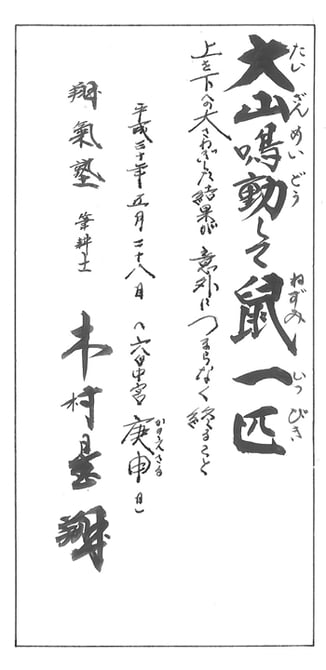 大山鳴動して鼠一匹
たいざんめいどう ねずみ いっぴき
上を下への大さわぎした結果が 意外につまらなく終ること
平成三十年正月二十八日 (六白中宮 庚申日)
かのえさる
翔氣塾 筆耕士 木村 翔